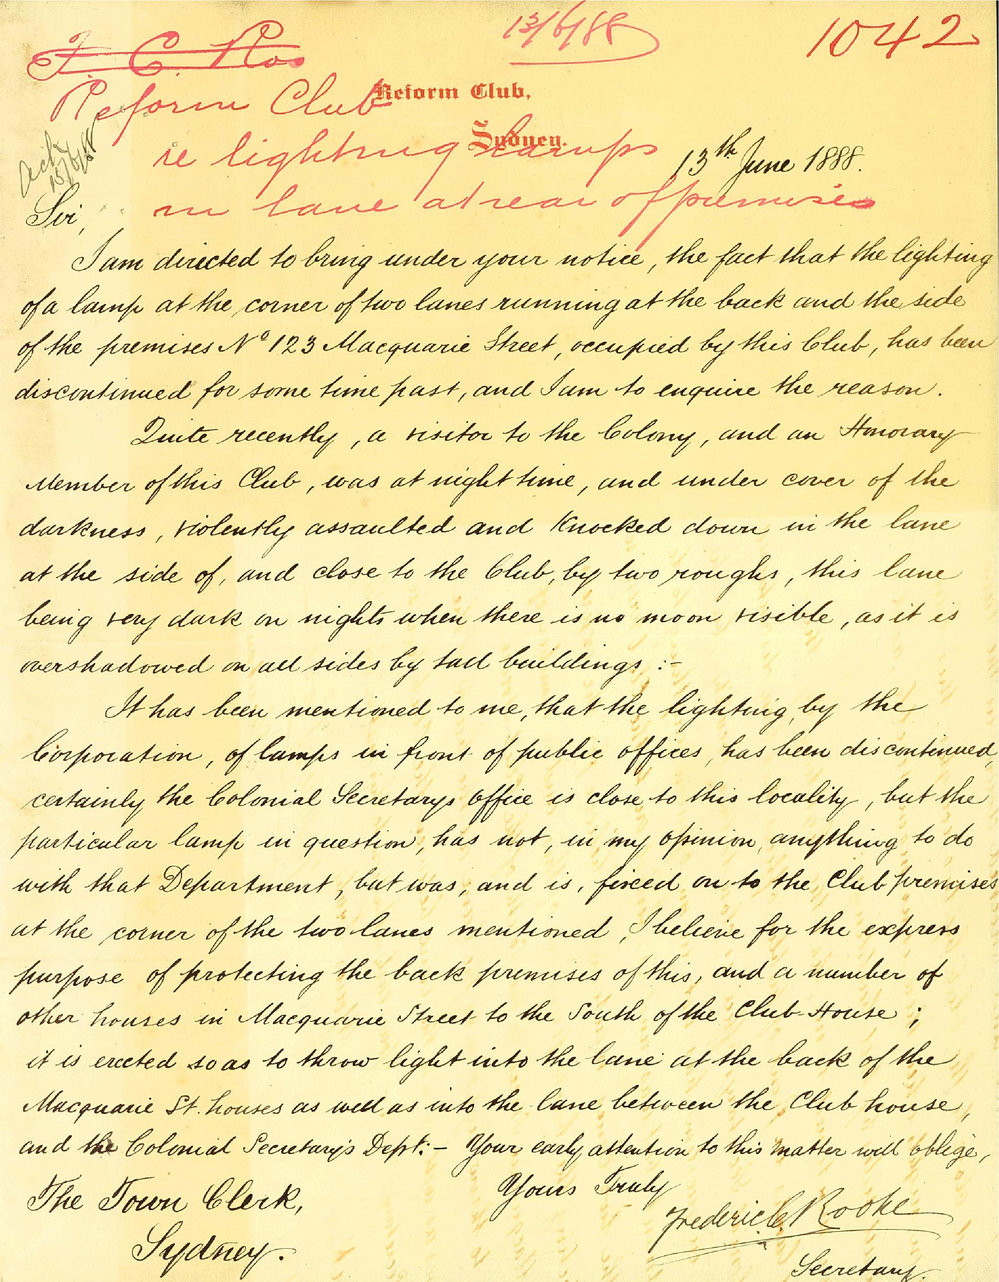 13/6/88
1042
F. C. Roo
Reform Club
Reform Club,
Sydney.
re lighting lamps
13th June 1888.
Ack
13/6/88
in lane at rear of premises
Sir,
I am directed to bring under your notice, the fact that the lighting
of a lamp at the corner of two lanes running at the back and the side
of the premises No 123 Macquarie Street, occupied by this Club, has been
discontinued for some time past, and I am to enquire the reason.
Quite recently, a visitor to the Colony, and an Honorary
Member of this Club, was at night time, and under cover of the
darkness, violently assaulted and knocked down in the lane
at the side of, and close to the Club, by two roughs, this lane
being very dark on nights when there is no moon visible, as it is
overshadowed on all sides by tall buildings :-
It has been mentioned to me, that the lighting, by the
Corporation, of lamps in front of public offices, has been discontinued,
certainly the Colonial Secretarys office is close to this locality, but the
particular lamp in question, has not, in my opinion, anything to do
with that Department, but was, and is, fixed on to the Club premises
at the corner of the two lanes mentioned, I believe for the express
purpose of protecting the back premises of this, and a number of
other houses in Macquarie Street to the South of the Club-House ;
it is erected so as to throw light into the lane at the back of the
Macquarie St. houses as well as into the lane between the Club house,
and the Colonial Secretary's Dept. :- Your early attention to this matter will oblige,
Yours Truly
The Town Clerk,
Frederic C. Rooke
Sydney.
Secretary